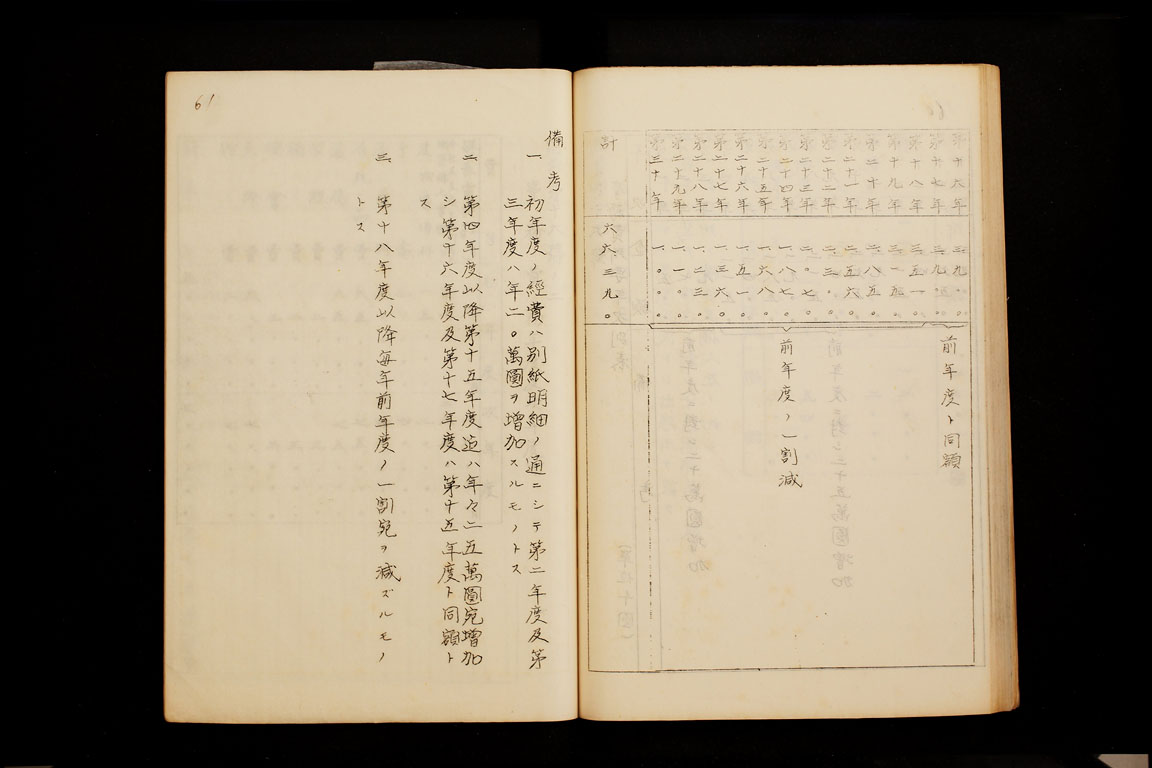 第十六年 三、九〇〇
第十七年 三、九〇〇
前年度ト同額
第十八年 三、五一〇
第十九年 三、一五〇
第二十年 二、八五〇
第二十一年 二、五六〇
第二十二年 二、三〇〇
第二十三年 二、〇七〇
第二十四年 一、八七〇
前年度ノ一割減
第二十五年 一、六八〇
第二十六年 一、五一〇
第二十七年 一、三六〇
第二十八年 一、二三〇
第二十九年 一、一〇〇
第三十年 一、〇〇〇
計 六六三九〇
61
備考
一、初年度ノ經費ハ別紙明細ノ通ニシテ第二年度及第
三年度ハ年二〇萬圓ヲ増加スルモノトス
二、第四年度以降第十五年度迄ハ年々二五萬圓宛増加
シ第十六年度及第十七年度ハ第十五年度ト同額ト
ス
三、第十八年度以降毎年前年度ノ一割宛ヲ減ズルモノ
トス